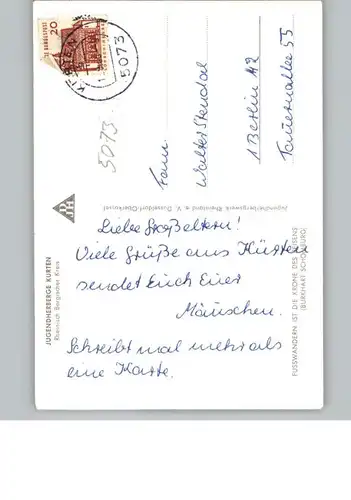 DEUTSCHE BUNDESPOST
20
5073
5073
JUGENDHERBERGE KÜRTEN
Rheinisch Bergischer Kreis
DJH
Liebe Großeltern!
Viele Grüße aus Kürten
sendet Euch Euer
Mäuschen.
Schreibt mal mehr als
eine Karte.
Jugendherbergswerk Rheinland e. V. Düsseldorf-Oberkassel
Walter Stendal
1 Berlin 42
55
FUSSWANDERN IST DIE KRONE DES REISENS